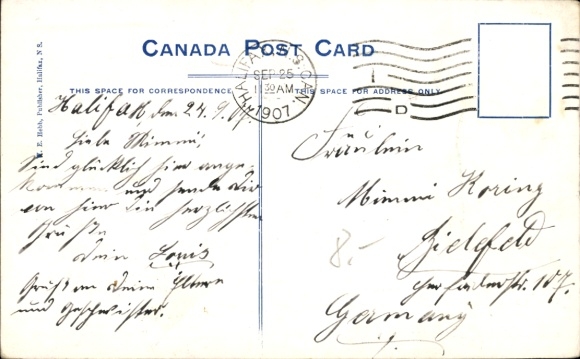 CANADA POST CARD
THIS SPACE FOR CORRESPONDENCE
THIS SPACE FOR ADDRESS ONLY
HALIFAX N.S. CAN.
SEP 25
11 30 AM
1907
D
Halifax, den 24.9.07.
Liebe Mimmi,
Sind glücklich hier ange-
kommen und sende Dir
von hier die herzlichsten
Grüße
Dein Louis
Gruß an Deine Eltern
und Geschwister.
Fräulein
Mimmi Koring
Bielefeld
Herforderstr. 107.
Germany
8.-